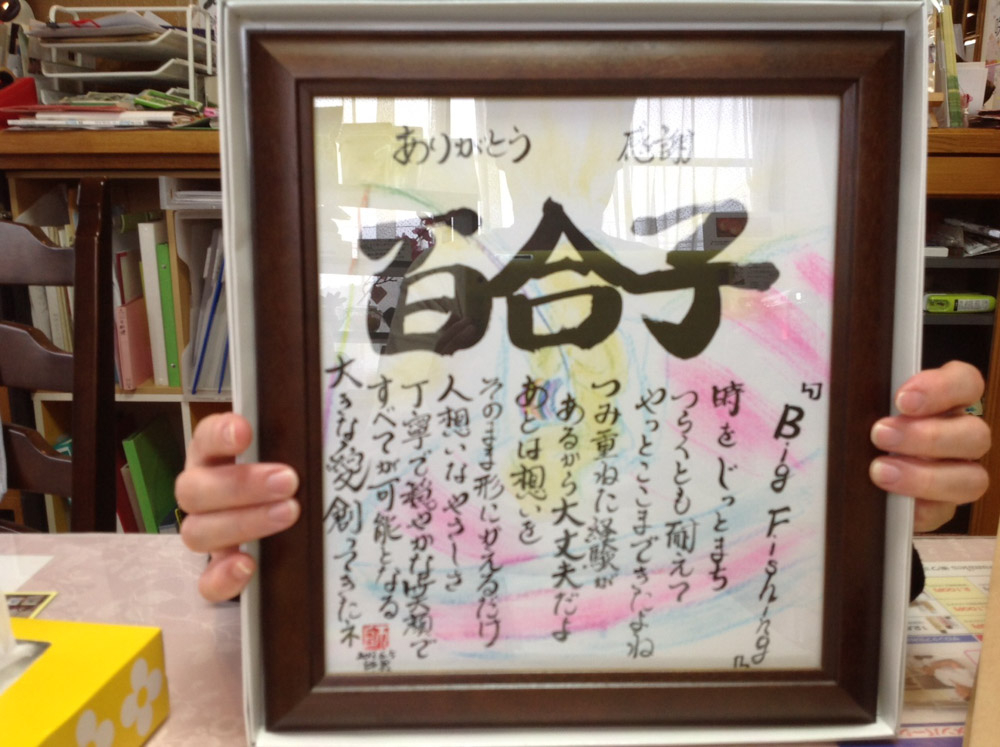 ありがとう 感謝
百合子
『Big Fishing』
時をじっとまち
つらくとも耐えて
やっとここまできたよね
つみ重ねた経験が
あるから大丈夫だよ
あとは想いを
そのまま形にかえるだけ
人想いなやさしさ
丁寧で穏やかな笑顔で
すべてが可能となる
大きな愛創ってきたネ